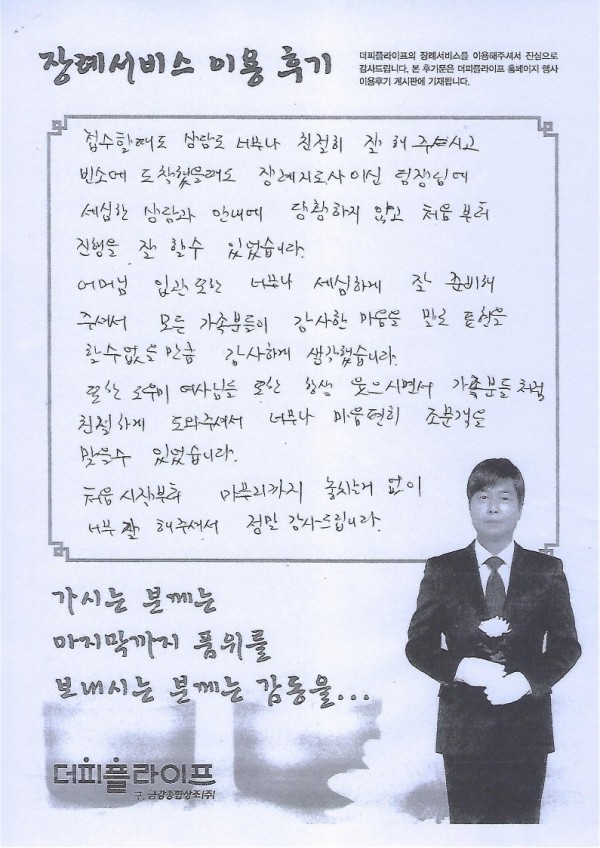 장례서비스 이용 후기
더피플라이프의 장례서비스를 이용해주셔서 진심으로
감사드립니다. 본 후기문은 더피플라이프 홈페이지 행사
이용후기 게시판에 기재됩니다.
접수할때도 상담도 너무나 친절히 잘 해 주셨고
빈소에 도착했을때도 장례지도사이신 팀장님에
세심한 상담과 안내에 당황하지 않고 처음 부터
진행을 잘 할수 있었습니다.
어머님 입관 또한 너무나 세심하게 잘 준비해
주셔서 모든 가족분들이 감사한 마음을 말로 표현을
할수없을 만큼 감사하게 생각했습니다.
또한 도우미 여사님들 또한 항상 웃으시면서 가족분들처럼
친절하게 도와주셔서 너무나 마음편히 조문객을
맞을수 있었습니다.
처음 시작부터 마무리까지 놓치는거 없이
너무 잘 해주셔서 정말 감사드립니다.
가시는 분께는
마지막까지 품위를
보내시는 분께는 감동을...
더피플라이프
구. 금강종합상조(주)